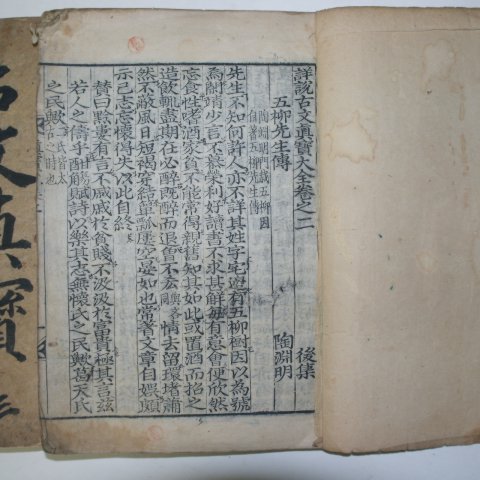 詳說古文眞寶大全卷之二
後集
五柳先生傳
陶淵明門栽五柳因
自著五柳先生傳
陶淵明
先生不知何許人亦不詳其姓字宅邊有五柳樹因以爲號
焉閑靖少言不慕榮利好讀書不求其解每有意會便欣然
忘食性嗜酒家貧不能常得親舊知其如此或置酒而招之
造飲輒盡期在必醉旣醉而退曾不吝情去留環堵蕭
然不蔽風日短褐穿結簞瓢屢空晏如也常著文章自娛頗
示己志忘懷得失以此自終
贊曰黔婁有言不戚戚於貧賤不汲汲於富貴極其言茲
若人之儔乎酣觴賦詩以樂其志無懷氏之民歟葛天氏
之民歟
古文眞寶